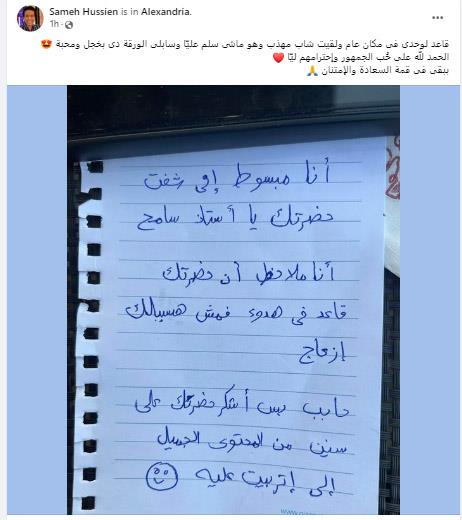 Sameh Hussien is in Alexandria.
1h
قاعد لوحدى فى مكان عام ولقيت شاب مهذب وهو ماشى سلم عليّا وسابلى الورقة دى بخجل ومحبة 😍
الحمد لله على حُب الجمهور وإحترامهم ليّا ❤️
ببقى فى قمة السعادة والإمتنان 🙏
أنا مبسوط إنى شفت
حضرتك يا أستاذ سامح
أنا ملاحظ أن حضرتك
قاعد فى هدوء فمش هسببلك
إزعاج
حابب بس أشكر حضرتك على
سنين من المحتوى الجميل
إلى إتربيت عليه